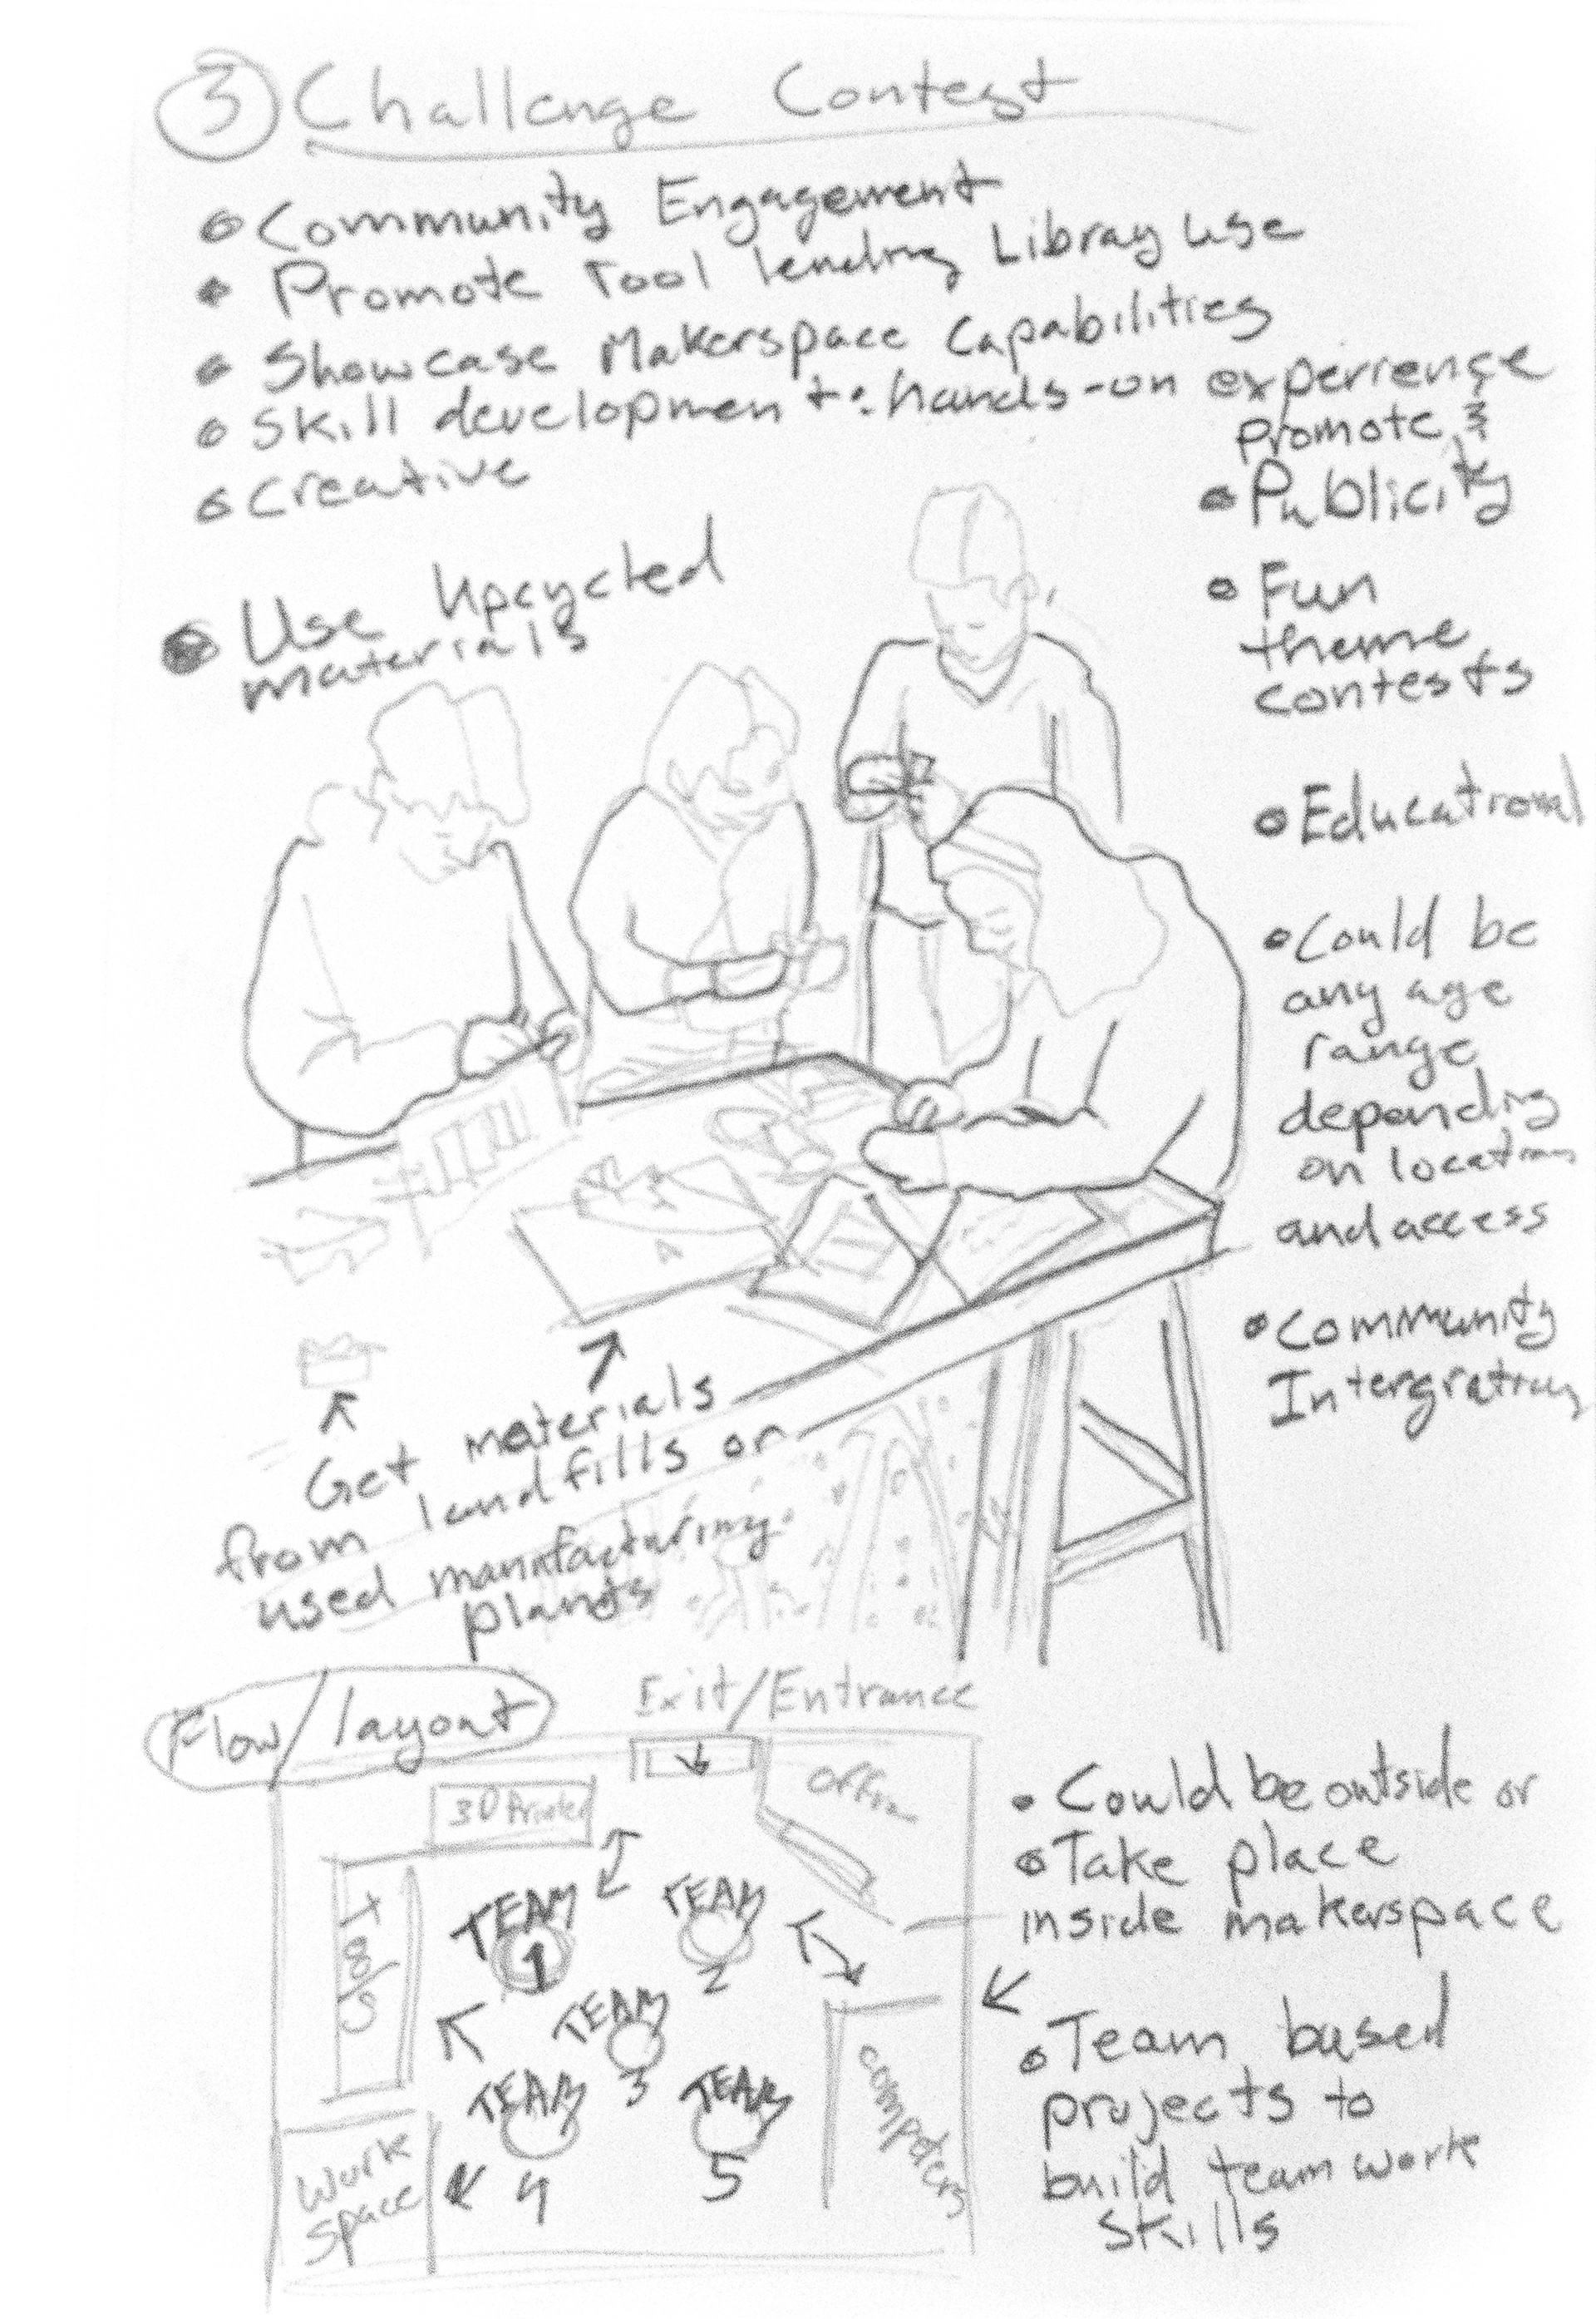 3 Challenge Contest
• Community Engagement
• Promote Tool lending Libray use
• Showcase Makerspace Capabilities
• Skill development: hands-on experience
• Creative
• Use Upcycled
materials
Promote &
• Publicity
• Fun
theme
contests
• Educational
• Could be
any age
range
depending
on location
and access
• Community
Intergration
Get materials
from landfills or
used manufacturing
plants
Flow/layout
Exit/Entrance
3D Printer
Office
Tools
TEAM
1
TEAM
2
TEAM
3
TEAM
4
TEAM
5
computers
Work
Space
• Could be outside or
• Take place
inside makerspace
• Team based
projects to
build team work
skills